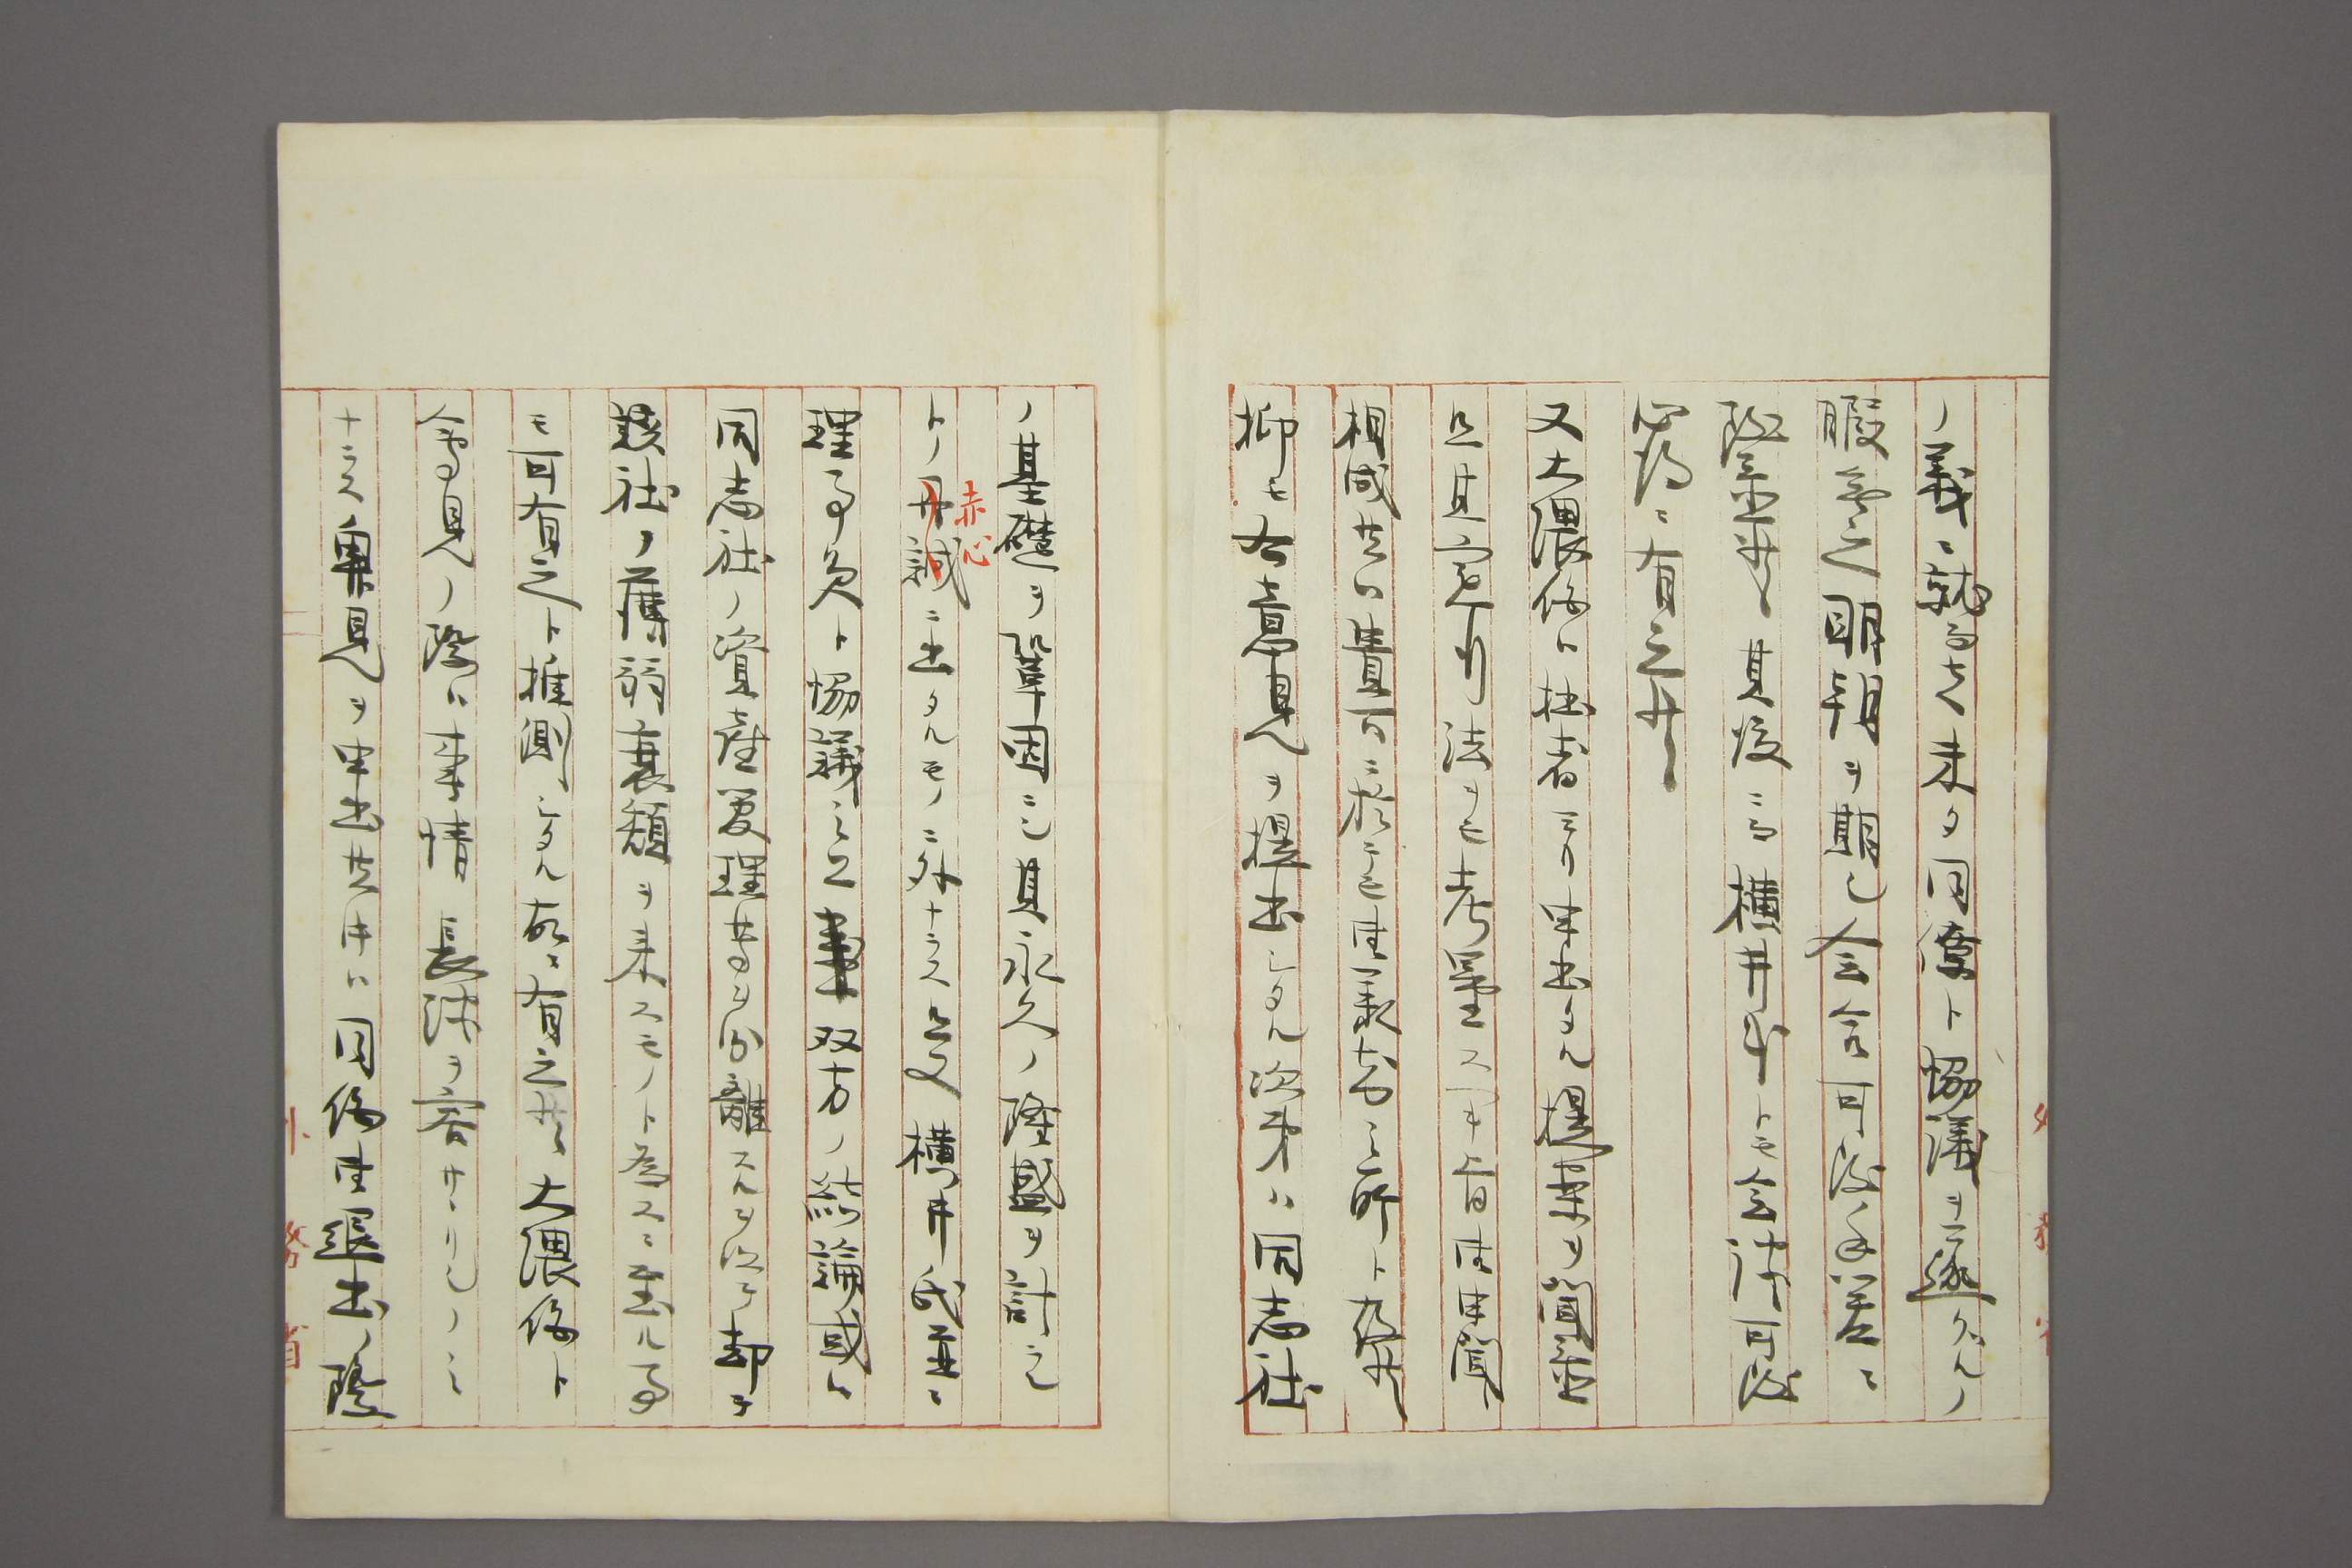 ノ義ニ就而ハ未タ同僚ト協議ヲ遂グルノ
暇無之明朝ヲ期シ会合可致手筈ニ
致累申候其後ニ而横井氏トモ会談可致
心得ニ有之候
又大隈伯ハ拙者ヨリ申出タル提案ヲ聞案
且其実行法ヲモ考量スヘキ旨申聞
相成候ハ貴下ニ於テモ御承知之所ト存候
抑モ右意見ヲ提出シタル次第ハ同志社
ノ基礎ヲ鞏固ニシ其永久ノ隆盛ヲ計ラン
トノ丹誠ニ出タルモノニ外ナラス然ルニ横井氏並ニ
赤心
理事員ト協議之上事双方ノ結論或ハ
同志社ノ資産管理者ヨリ分離スルヲ以テ却テ
該社ノ薄弱衰頽ヲ来スモノト為スニ至ル事
モ可有之ト推測シタル故ニ有之候大隈伯ト
会見ノ際ハ事情長談ヲ容サヽリシノミ
ナラス奥見ヲ申出候中ハ同伯中退出ノ際
外務省
外務省